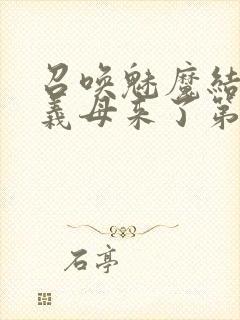 召唤魅魔结
义母来了第
石亭